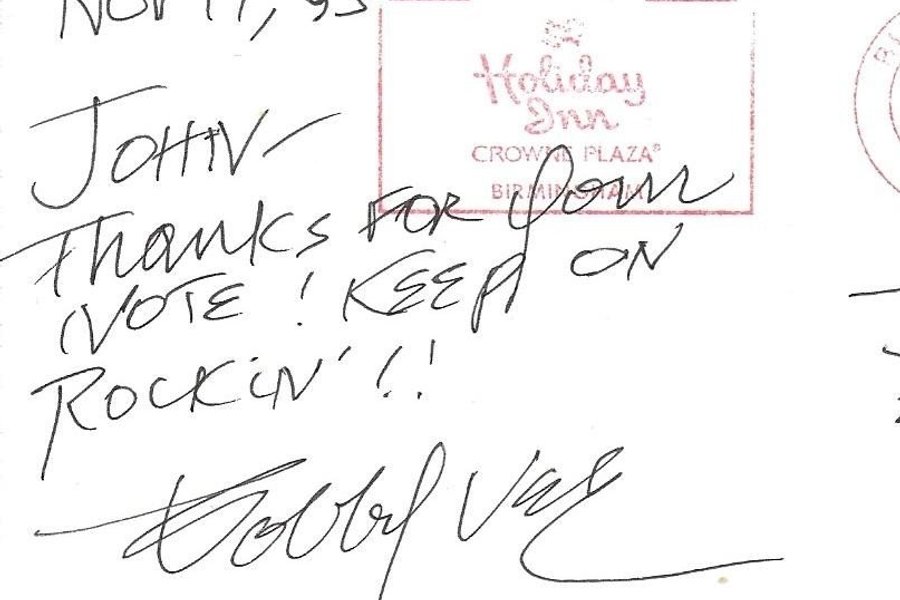 Nov 17, 93
Holiday
Inn
CROWNE PLAZA®
BIRMINGHAM
JOHN-
Thanks FOR your
NOTE! KEEP ON
ROCKIN'!!
Bobby Vee